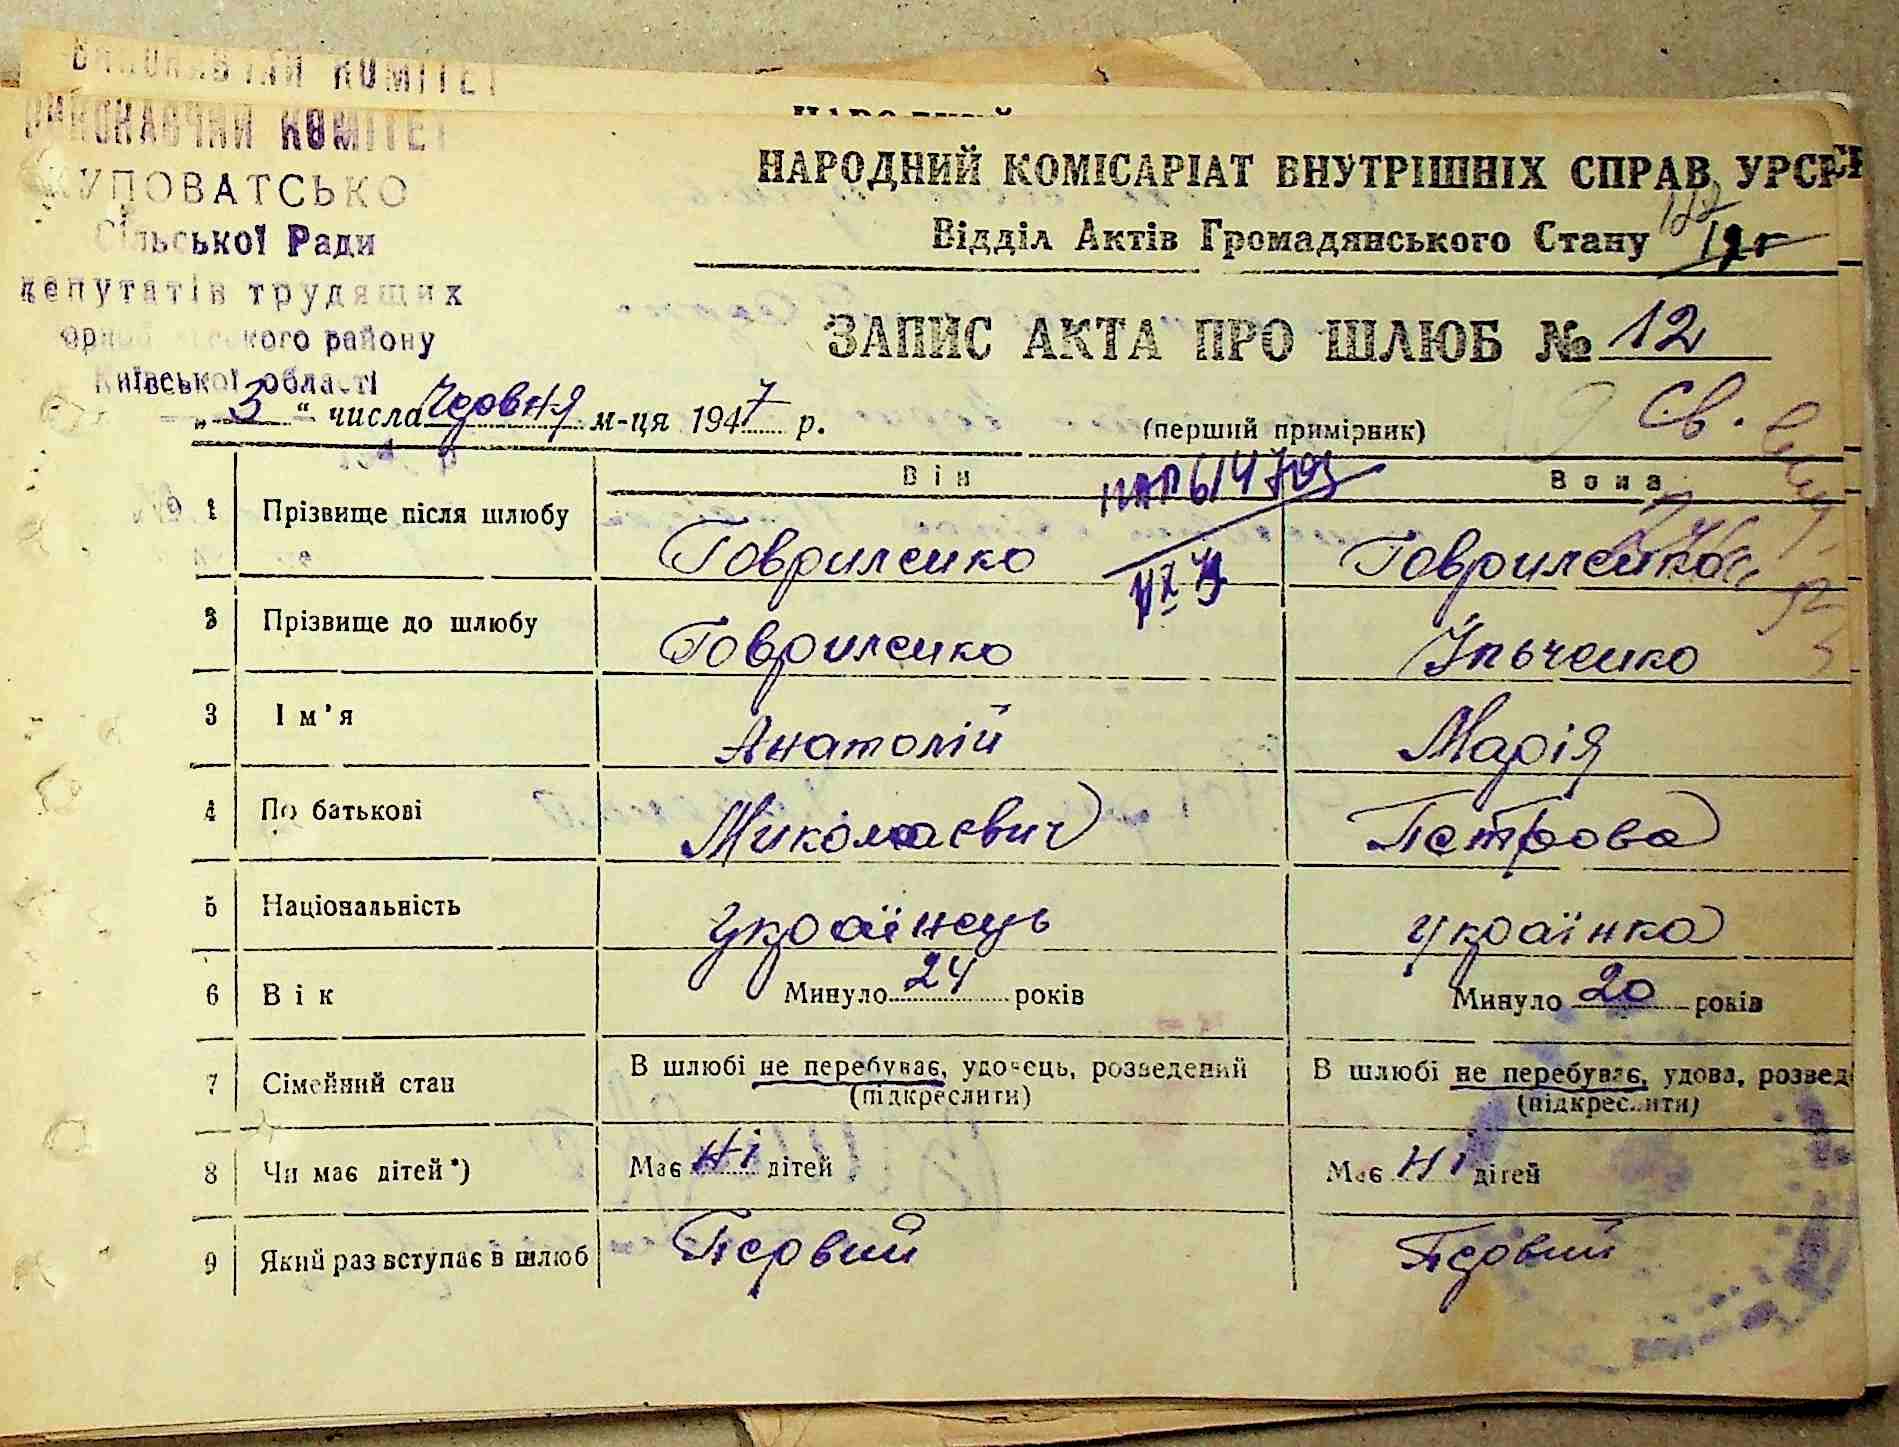 ВИКОНАВЧИЙ КОМІТЕТ
ВИКОНАВЧИЙ КОМІТЕТ
КУПОВАТСЬКО
Сільської Ради
депутатів трудящих
району
Київської області
НАРОДНИЙ КОМІСАРІАТ ВНУТРІШНІХ СПРАВ УРСР
Відділ Актів Громадянського Стану
ЗАПИС АКТА ПРО ШЛЮБ № 12
„ 3 “ числа Червня м-ця 1947 р.
(перший примірник) Св.
Він Вона
1 Прізвище після шлюбу Говриленко Говриленко
2 Прізвище до шлюбу Говриленко Ільченко
3 Ім'я Анатолій Марія
4 По батькові Миколаєвич Петрова
5 Національність Українець Українка
6 Вік Минуло 24 років Минуло 20 років
7 Сімейний стан В шлюбі не перебуває, удовець, розведений В шлюбі не перебуває, удова, розвед
(підкреслити) (підкреслити)
8 Чи має дітей*) Має Ні дітей Має Ні дітей
9 Який раз вступає в шлюб Первий Первий